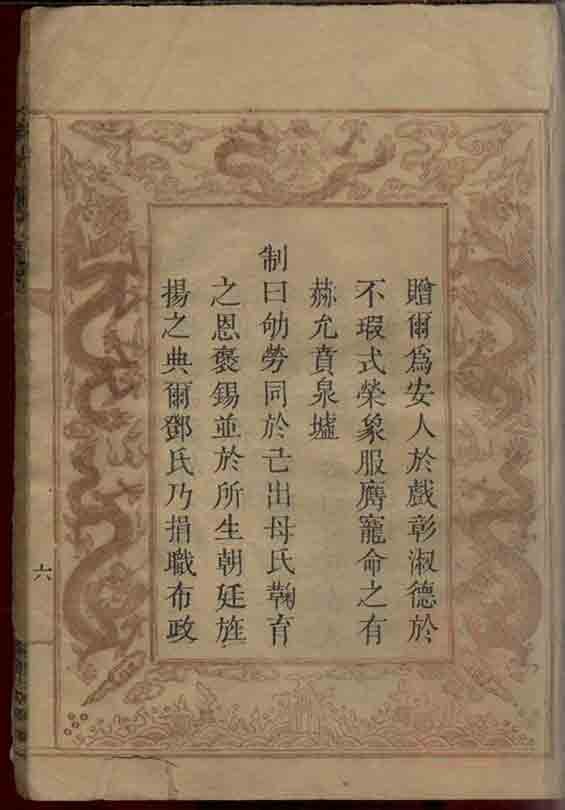 贈爾爲安人於戲彰淑德於
不瑕式榮象服膺寵命之有
赫允賁泉壚
制曰劬勞同於己出母氏鞠育
之恩褒錫並於所生朝廷旌
揚之典爾鄧氏乃捐職布政
六